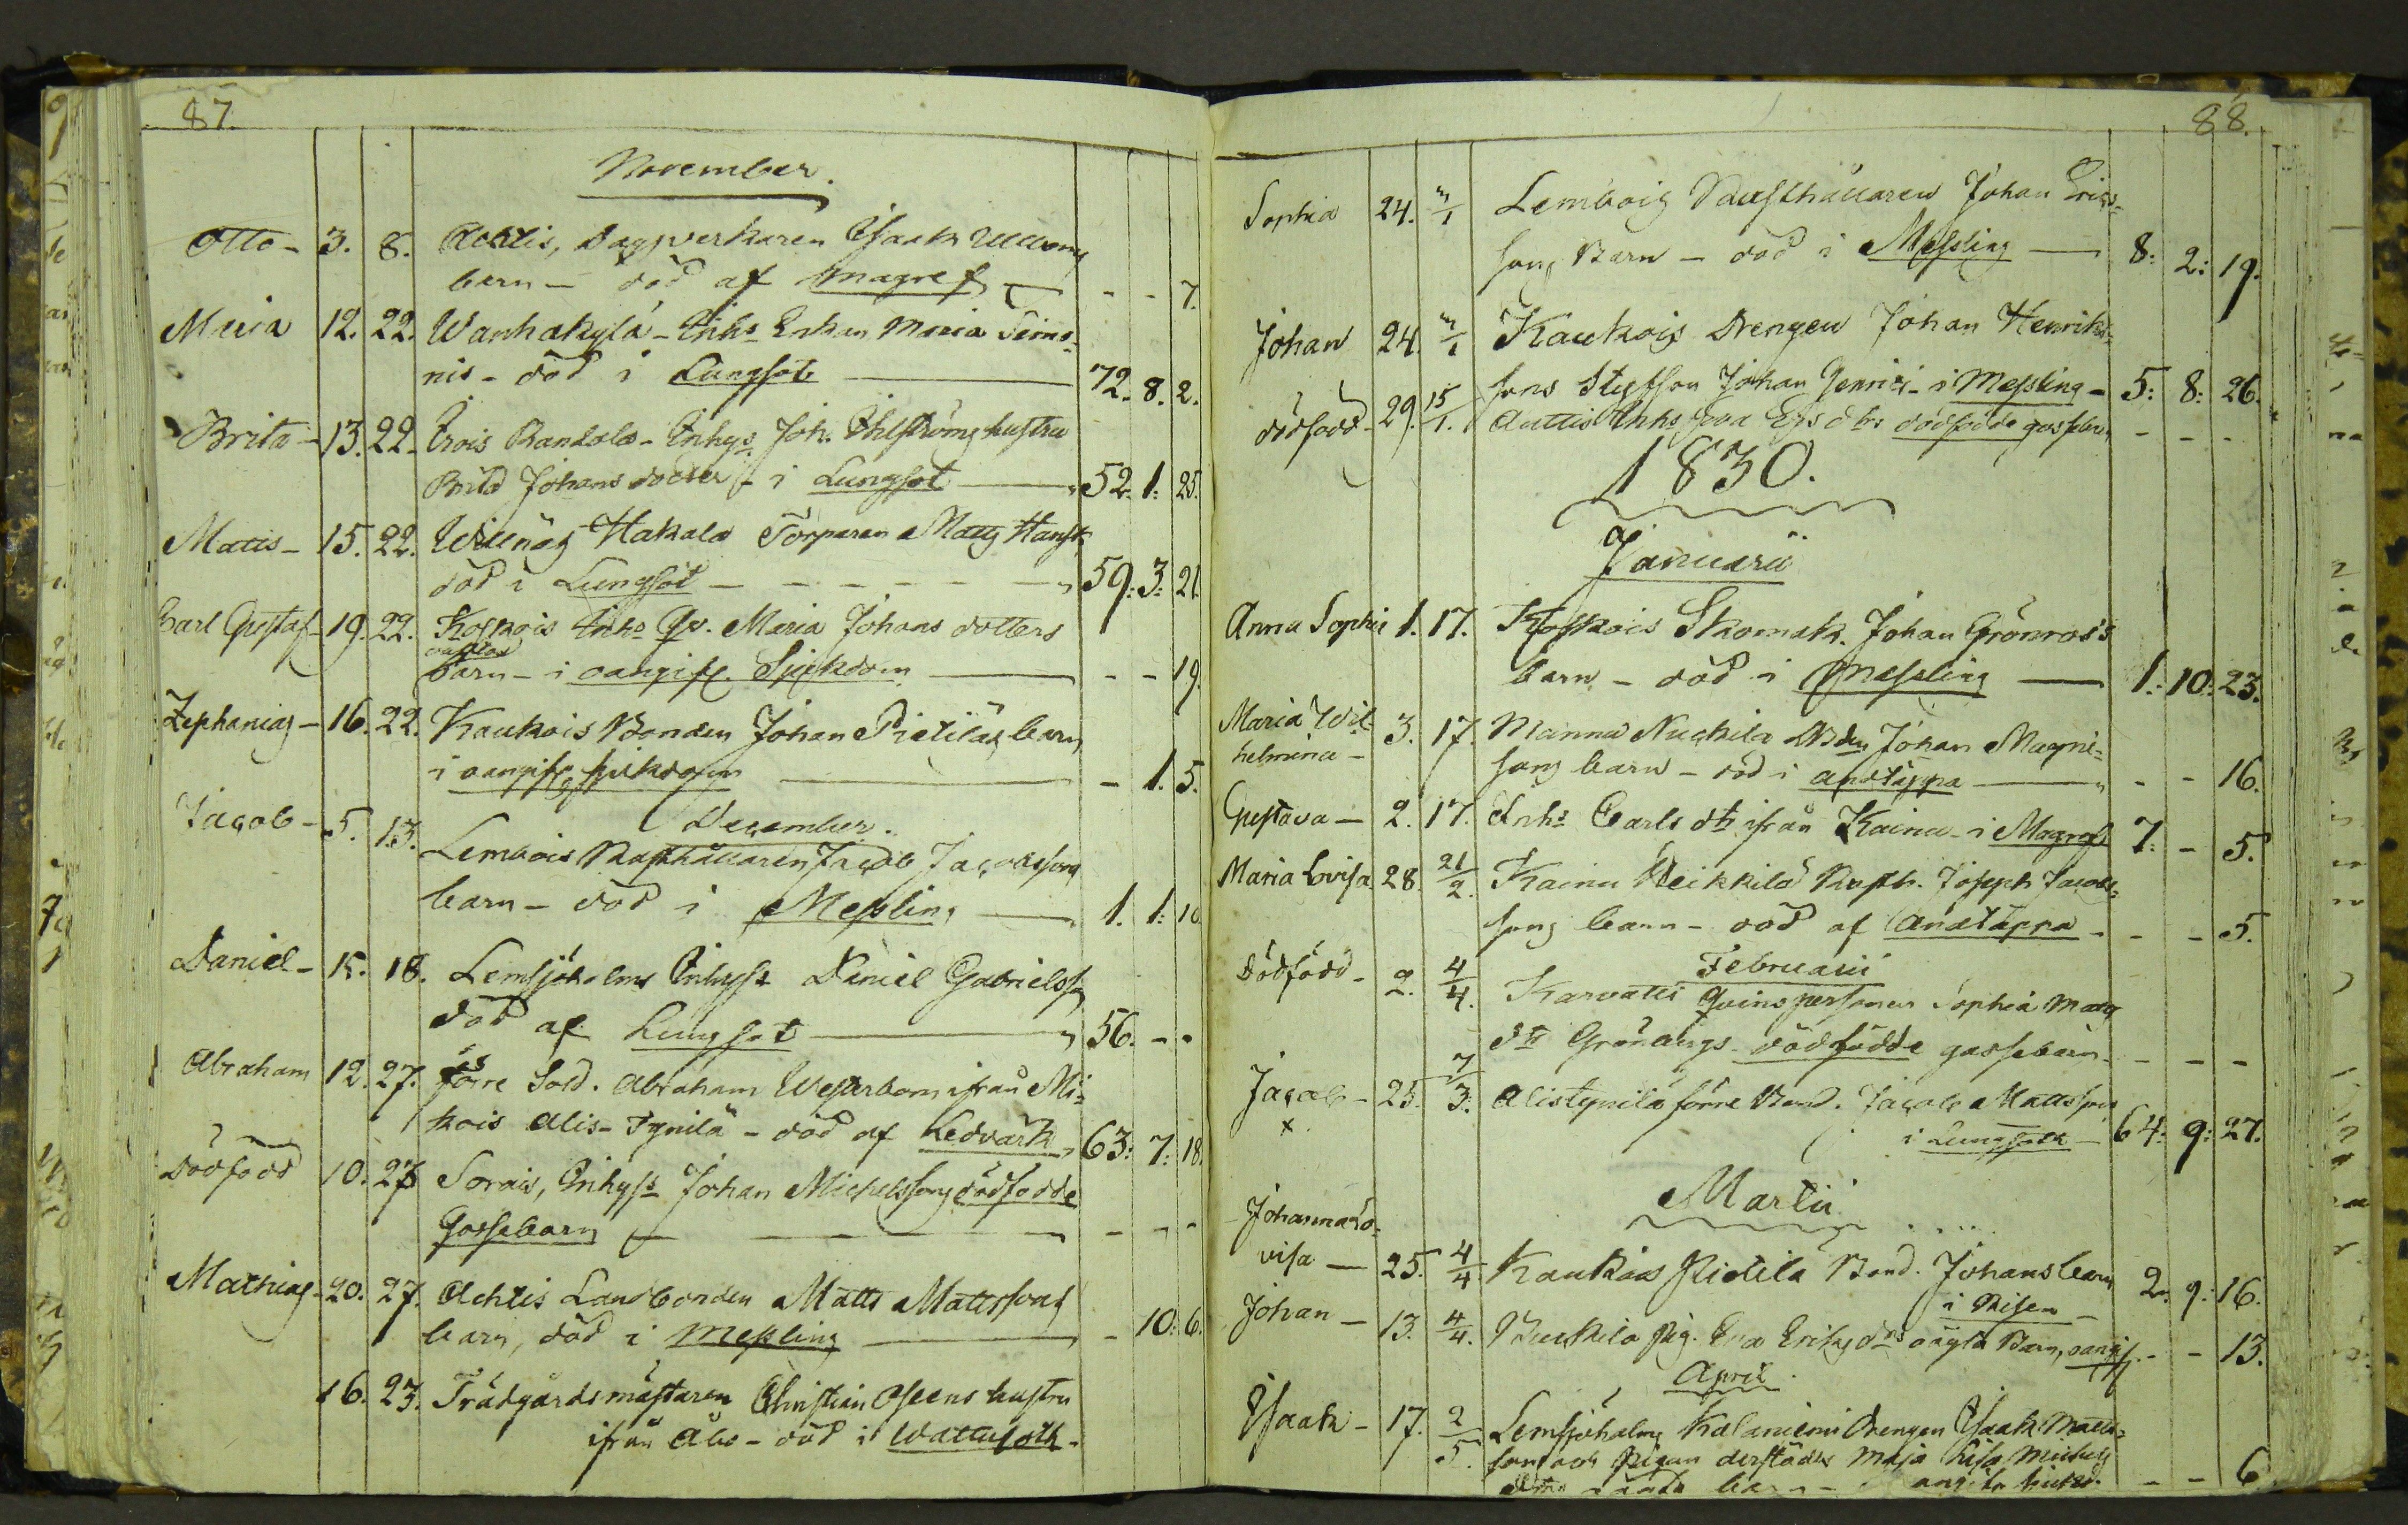 87.
November.
Otto - 3. 8. Achtis, Dagsverkaren Isaak
bern - död af magref - - 7.
Maria 12. 22. Wanhakylä - Inhs Enkan Maria Simo-
nis - död i Lungsot 72. 8. 2.
Brita - 13. 22. Irois Randala - Inhys Joh. Öhlströms hustru
Brita Johansdotter - i Lungsot 52. 1. 25.
Matts - 15. 22. Willnäs Hakala Torparen Matts Hansk
död i Lungsot 59. 3. 21.
Carl Gustaf - 19. 22. Koskois Inhs Qv. Maria Johans dotters
oäkta
barn - i oangifv. Sjukdom - - 19.
Zephanias - 16. 22. Kaukois Bonden Johan Pietiläs barn
i oangifv sjukdom - 1. 5.
December.
Jacob - 5. 13. Lembois Rusthållaren Jacob Jacobssons
barn - död i Messling 1. 1. 10
Daniel - 15. 18. Lemsjöholms Inhyse Daniel Gabrielss
död af Lungsot 56. - -
Abraham 12. 27. förre Sold. Abraham Westerbom ifrån Mi-
kois Alis-Tynilä - död af Ledvärk 63. 7. 18.
Dödfödd 10. 27 Sorais, Inhyse Johan Michelssons dödfödde
Gossebarn - - -
Mathias - 20. 27. Achtis Landbonden Matts Mattssons
barn, död i Messling - 10. 6.
16. 23. Trädgårdsmästaren Christian hustru
ifrån Åbo - död i Wattusoth.
88.
Sophia 24. Lembois Rusthållaren Johan Erics-
sons Barn - död i Messling 8. 2. 19.
Johan 24. Kaukois Drengen Johan Henriks-
sons Styfson Johan Henrici - i Messling - 5. 8. 26.
dödfödd - 29. 15/1. Auttis Inhs dödfödde gossebn - - -
1830.
Januarii
Anna Sophia 1. 17. Koskois Skomak. Johan Grönroos's
barn - död i Messling 1. 10. 23.
Maria Wil-
helmina - 3. 17. Manna Nuckila Bdn Johan Magni-
sons barn - död i andtäppa - - 16.
Gustava - 2. 17. Inhs Carls dtr ifrån Kainu - i Magref 7. - 5.
Maria Lovisa 28. 21/2. Kainu Heikkilä Rusth. Joseph Jacobs-
sons barn - död af Andtäppa - - - 5.
Februarii
Dödfödd - 2. 4/4. Karvatti Qvinspersonen Sophia Matts
dtr Grönbergs dödfödde gossebarn - - -
Jacob - 25. 7/3. Alistynilä förre Bond. Jacob Mattsson
x i Lungsoth - 64. 9. 27.
Martii
Johanna Lo-
visa - 25. 4/4. Kaukois Pietilä Bond. Johans barn 2. 9. 16.
i Risen -
Johan - 13. 4/4. Nuckila Pig. Eva Ericsdrs oägta Barn, oangif. - - 13.
April
Isaak - 17. 2/5. Lemsjöholms Kalaniemi Drengen Isaak Matts-
son och Pigan derstädes Maja Lisa Michels
barn - - - 6